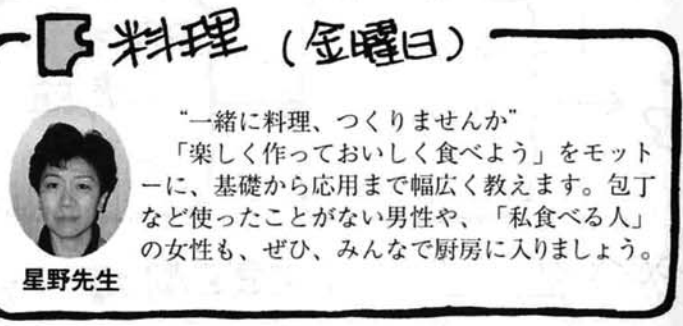 料理（金曜日）
“一緒に料理、つくりませんか”
「楽しく作っておいしく食べよう」をモット
ーに、基礎から応用まで幅広く教えます。包丁
など使ったことがない男性や、「私食べる人」
の女性も、ぜひ、みんなで厨房に入りましょう。
星野先生